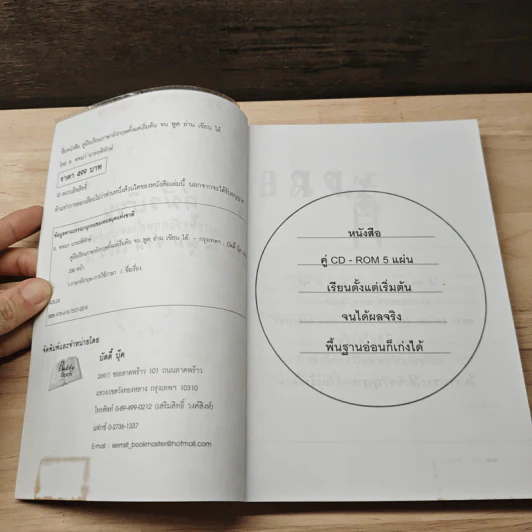 ชื่อหนังสือ คู่มือเรียนภาษาอังกฤษตั้งแต่เริ่มต้น จน พูด อ่าน เขียน ได้
ราคา 499 บาท
© สงวนลิขสิทธิ์
ข้อมูลทางบรรณานุกรมของหอสมุดแห่งชาติ
คู่มือเรียนภาษาอังกฤษตั้งแต่เริ่มต้น จน พูด อ่าน เขียน ได้. - กรุงเทพฯ : บัดดี้ บุ๊ค
336 หน้า
1.ภาษาอังกฤษ-การใช้ภาษา I. ชื่อเรื่อง.
จัดพิมพ์และจำหน่ายโดย
Buddy Book
บัดดี้ บุ๊ค
369/1 ซอยลาดพร้าว 101 ถนนลาดพร้าว
แขวง/เขตวังทองหลาง กรุงเทพฯ 10310
โทรศัพท์ 0-89-499-0212 (เสริมสิทธิ์ วงศ์สิงห์)
แฟกซ์ 0-2736-1337
E-mail : sermsit_bookmaster@hotmail.com
หนังสือ
คู่ CD - ROM 5 แผ่น
เรียนตั้งแต่เริ่มต้น
จนได้ผลจริง
พื้นฐานอ่อนก็เก่งได้